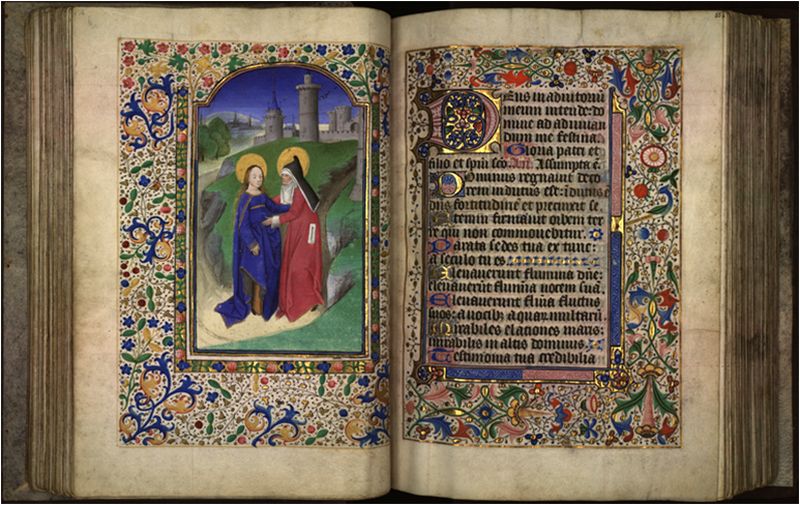 Deus in adiutoriū
meum intende: do
mine ad adiuvan
dum me festina.
Gloria patri et
filio et spūi scō. Añ. Assumpta ē.
Dominus regnavit deco
rem indutus est: indutus ē
dūs fortitudinē et precinxit se.
Etenim firmavit orbem ter
re qui non commovebitur.
Parata sedes tua ex tunc
a seculo tu es
Elevaverunt flumina dñe:
elevaverūt flumina vocem suā.
Elevaverunt flūa fluctus
suos: a vocib; aquaȝ multarū.
Mirabiles elationes maris:
mirabilis in altis dominus.
Testimonia tua credibilia